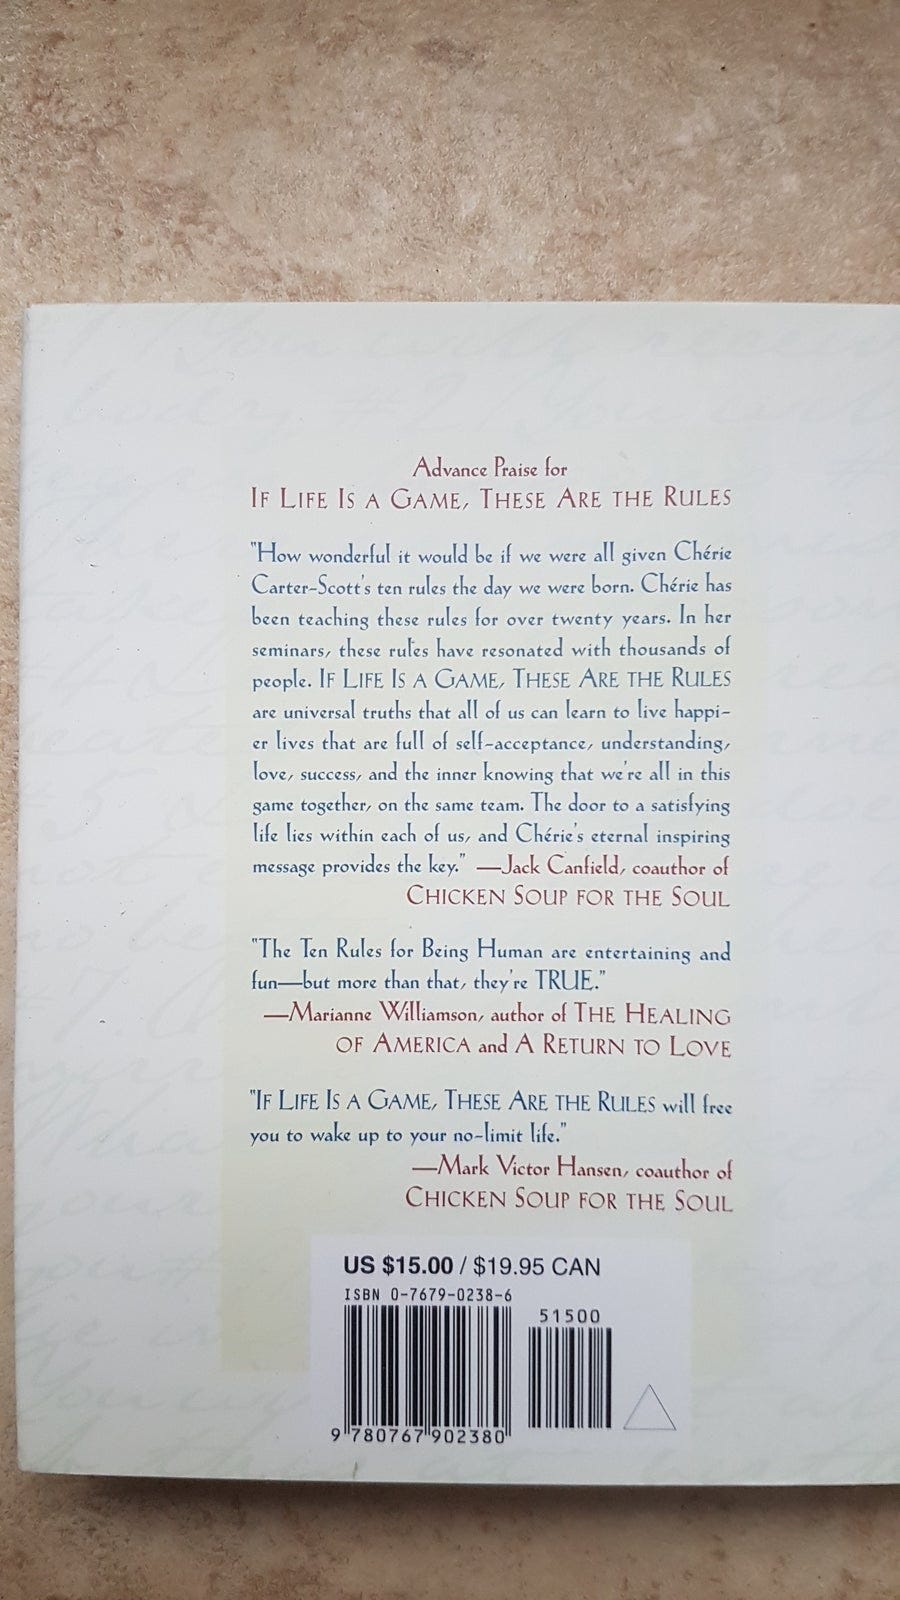 Advance Praise for
IF LIFE IS A GAME, THESE ARE THE RULES
"How wonderful it would be if we were all given Chérie
Carter-Scott's ten rules the day we were born. Chérie has
been teaching these rules for over twenty years. In her
seminars, these rules have resonated with thousands of
people. IF LIFE IS A GAME, THESE ARE THE RULES
are universal truths that all of us can learn to live happi-
er lives that are full of self-acceptance, understanding,
love, success, and the inner knowing that we're all in this
game together, on the same team. The door to a satisfying
life lies within each of us, and Chérie's eternal inspiring
message provides the key." —Jack Canfield, coauthor of
CHICKEN SOUP FOR THE SOUL
"The Ten Rules for Being Human are entertaining and
fun—but more than that, they're TRUE."
—Marianne Williamson, author of THE HEALING
OF AMERICA and A RETURN TO LOVE
"IF LIFE IS A GAME, THESE ARE THE RULES will free
you to wake up to your no-limit life."
—Mark Victor Hansen, coauthor of
CHICKEN SOUP FOR THE SOUL
US $15.00 / $19.95 CAN
ISBN 0-7679-0238-6
51500
9 780767 902380